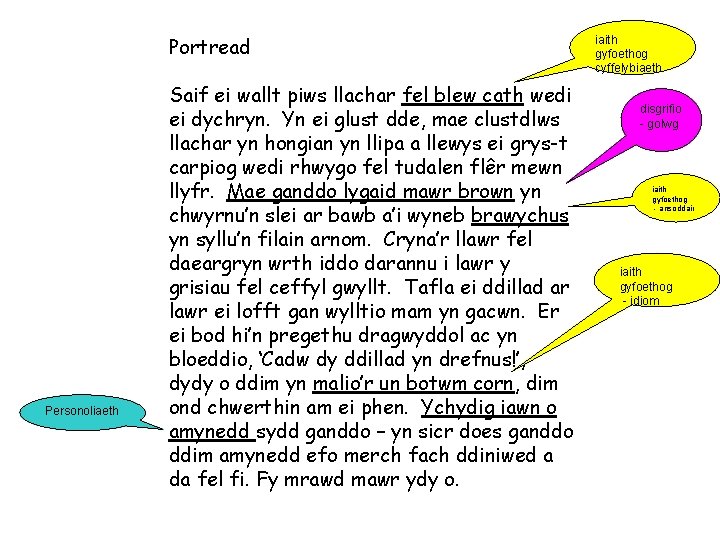 Portread
Saif ei wallt piws llachar fel blew cath wedi
ei dychryn. Yn ei glust dde, mae clustdlws
llachar yn hongian yn llipa a llewys ei grys-t
carpiog wedi rhwygo fel tudalen flêr mewn
llyfr. Mae ganddo lygaid mawr brown yn
chwyrnu’n slei ar bawb a’i wyneb brawychus
yn syllu’n filain arnom. Cryna’r llawr fel
daeargryn wrth iddo darannu i lawr y
grisiau fel ceffyl gwyllt. Tafla ei ddillad ar
lawr ei lofft gan wylltio mam yn gacwn. Er
ei bod hi’n pregethu dragwyddol ac yn
bloeddio, ‘Cadw dy ddillad yn drefnus!’,
dydy o ddim yn malio’r un botwm corn, dim
ond chwerthin am ei phen. Ychydig iawn o
amynedd sydd ganddo – yn sicr does ganddo
ddim amynedd efo merch fach ddiniwed a
da fel fi. Fy mrawd mawr ydy o.
iaith
gyfoethog
cyffelybiaeth
disgrifio
- golwg
iaith
gyfoethog
- ansoddair
iaith
gyfoethog
- idiom
Personoliaeth